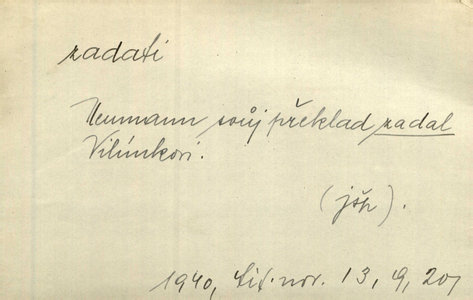 zadati
Neumann svůj překlad zadal
Vilímkovi.
(jšp).
1940, Lit. nov. 13, 9, 207